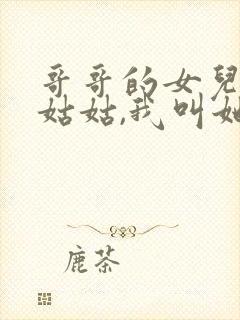 哥哥的女兒
姑姑,我叫她
鹿茶